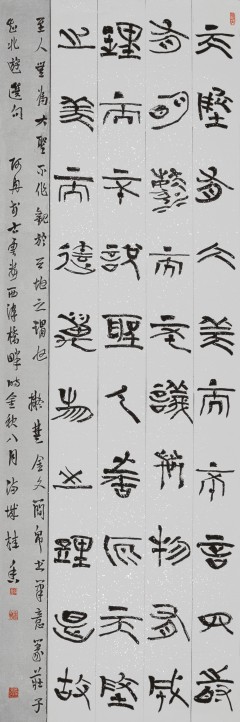 天墬有大美而不言四時
有明法而不議萬物有成
理而不說聖人者原天墬
之美而達萬物之理是故
至人無為大聖不作觀於天地之謂也 擬楚金文簡帛書筆意篆莊子
知北遊選句 西津橋畔時金秋八月